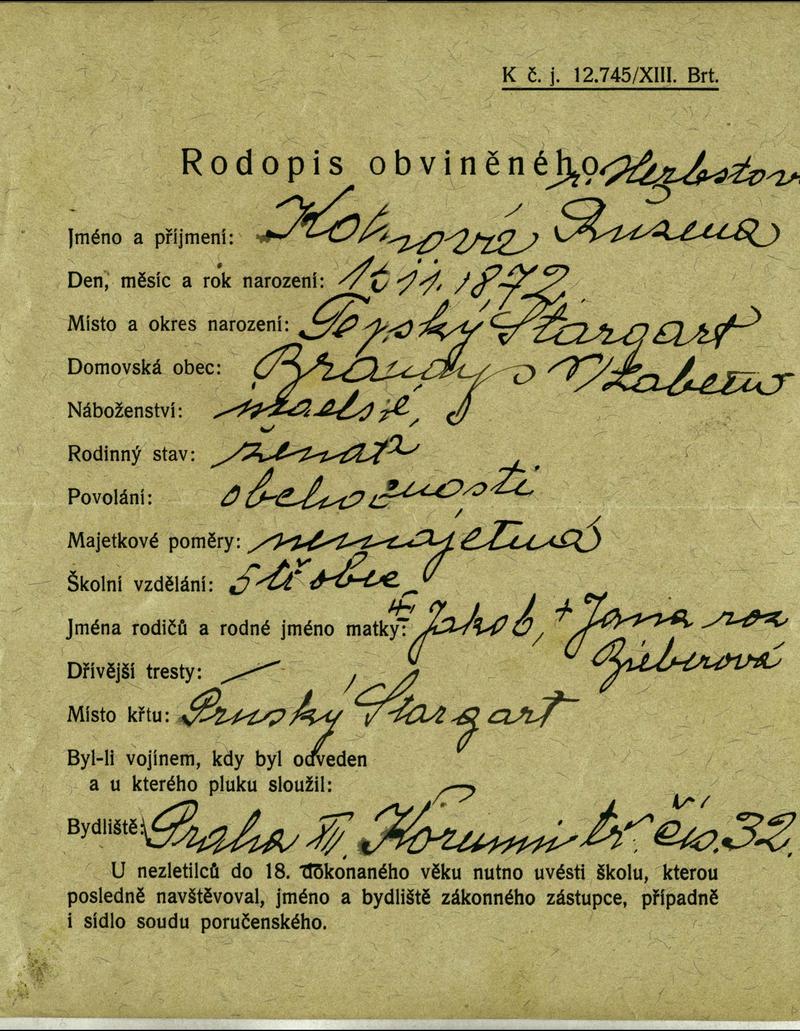 K č. j. 12.745/XIII. Brt.
Rodopis obviněného
r. Herbstov
Jméno a příjmení: Růžena
Den, měsíc a rok narození: 11. 1872
Místo a okres narození: Stargart
Domovská obec: Brandys n/Labem
Náboženství:
Rodinný stav:
Povolání:
Majetkové poměry: nemajetná
Školní vzdělání:
Jména rodičů a rodné jméno matky: Jakob, + Jana roz
Bieberová
Dřívější tresty: —
Místo křtu: Pruský Stargart
Byl-li vojínem, kdy byl odveden
a u kterého pluku sloužil:
Bydliště: Praha XII. tř. čís. 32.
U nezletilců do 18. dokonaného věku nutno uvésti školu, kterou
posledně navštěvoval, jméno a bydliště zákonného zástupce, případně
i sídlo soudu poručenského.